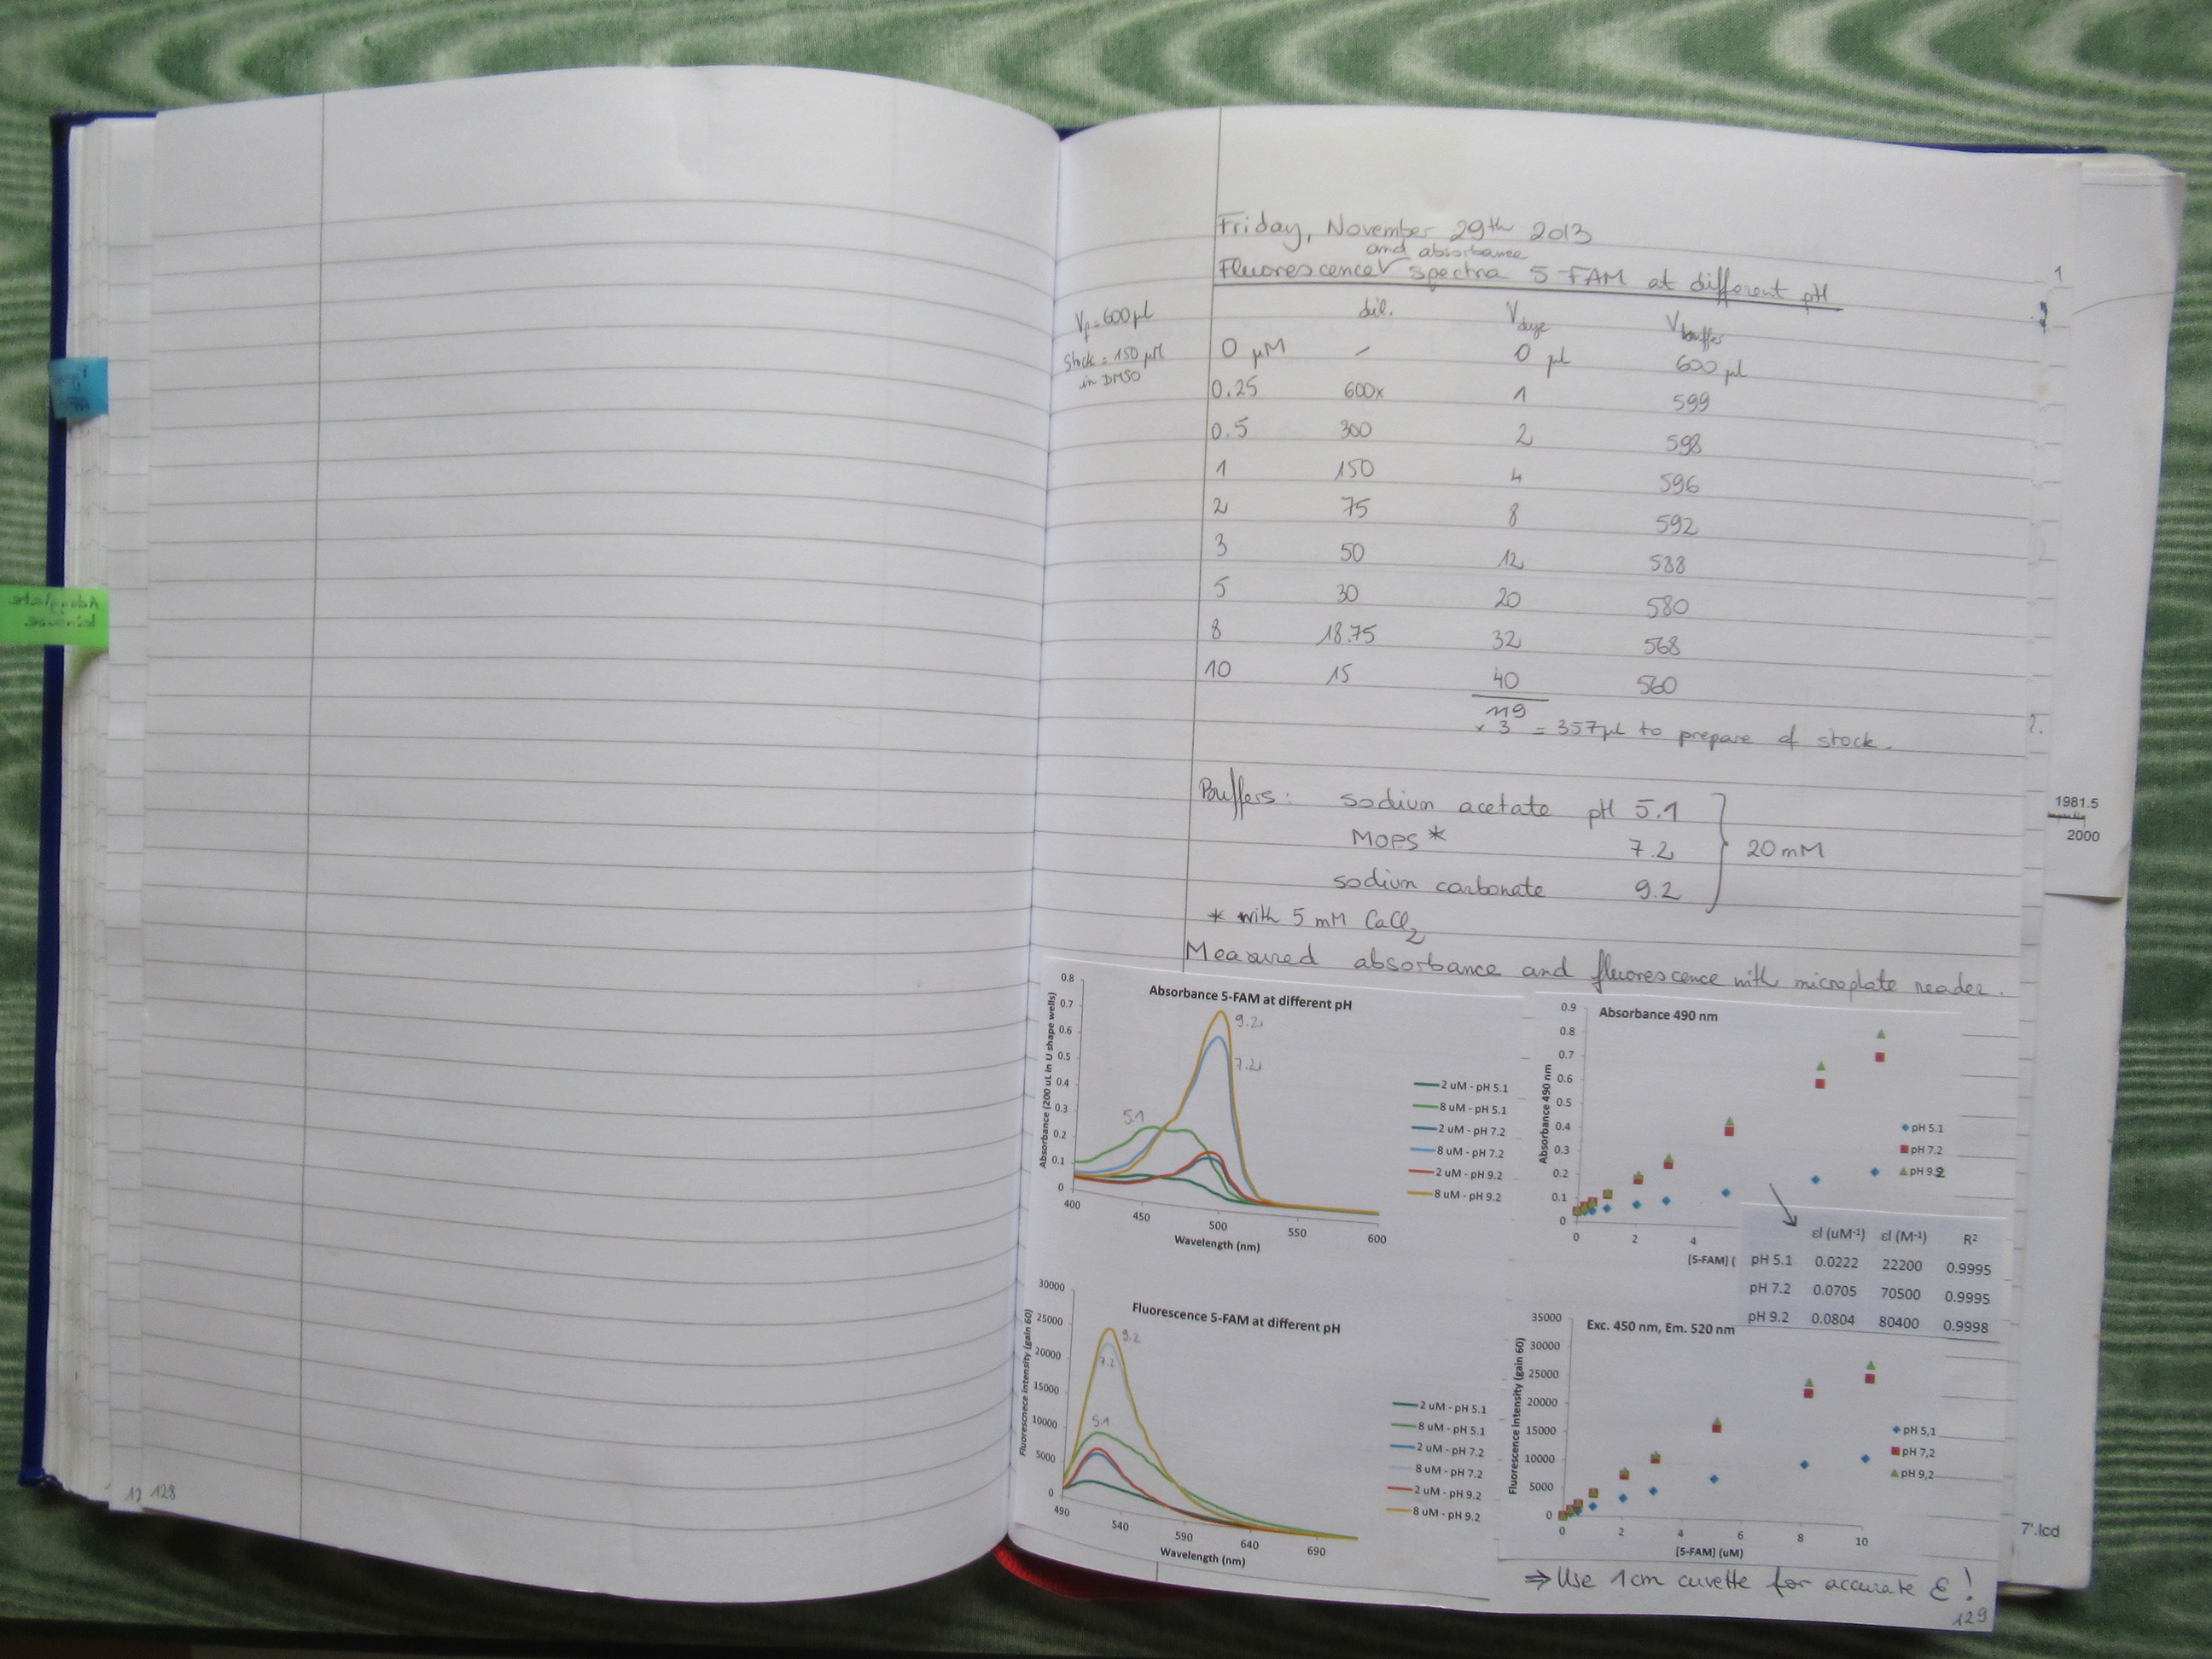 Friday, November 29th 2013
and absorbance
Fluorescence√ spectra 5-FAM at different pH
dil. Vdye Vbuffer
Vf = 600 µl
Stock = 150 µM
in DMSO
0 µM – 0 µl 600 µl
0.25 600x 1 599
0.5 300 2 598
1 150 4 596
2 75 8 592
3 50 12 588
5 30 20 580
8 18.75 32 568
10 15 40 560
119
x 3 = 357µl to prepare of stock.
Buffers: sodium acetate pH 5.1
MOPS* 7.2 20 mM
sodium carbonate 9.2
* with 5 mM CaCl2
Measured absorbance and fluorescence with microplate reader.
Absorbance 5-FAM at different pH
Absorbance (200 uL in U shape wells)
0.8
0.7
0.6
0.5
0.4
0.3
0.2
0.1
0
9.2
7.2
5.1
400 450 500 550 600
Wavelength (nm)
2 uM - pH 5.1
8 uM - pH 5.1
2 uM - pH 7.2
8 uM - pH 7.2
2 uM - pH 9.2
8 uM - pH 9.2
Absorbance 490 nm
Absorbance 490 nm
0.9
0.8
0.7
0.6
0.5
0.4
0.3
0.2
0.1
0
0 2 4
[5-FAM] (
pH 5.1
pH 7.2
pH 9.2
εl (uM-1) εl (M-1) R2
pH 5.1 0.0222 22200 0.9995
pH 7.2 0.0705 70500 0.9995
pH 9.2 0.0804 80400 0.9998
Fluorescence 5-FAM at different pH
Fluorescnece intensity (gain 60)
30000
25000
20000
15000
10000
5000
0
9.2
7.2
5.1
490 540 590 640 690
Wavelength (nm)
2 uM - pH 5.1
8 uM - pH 5.1
2 uM - pH 7.2
8 uM - pH 7.2
2 uM - pH 9.2
8 uM - pH 9.2
Exc. 450 nm, Em. 520 nm
Fluorescence intensity (gain 60)
35000
30000
25000
20000
15000
10000
5000
0
0 2 4 6 8 10
[5-FAM] (uM)
pH 5,1
pH 7,2
pH 9,2
⇒ Use 1 cm cuvette for accurate ε!
129
128
1981.5
2000
7'.lcd
Adenylate
kinase